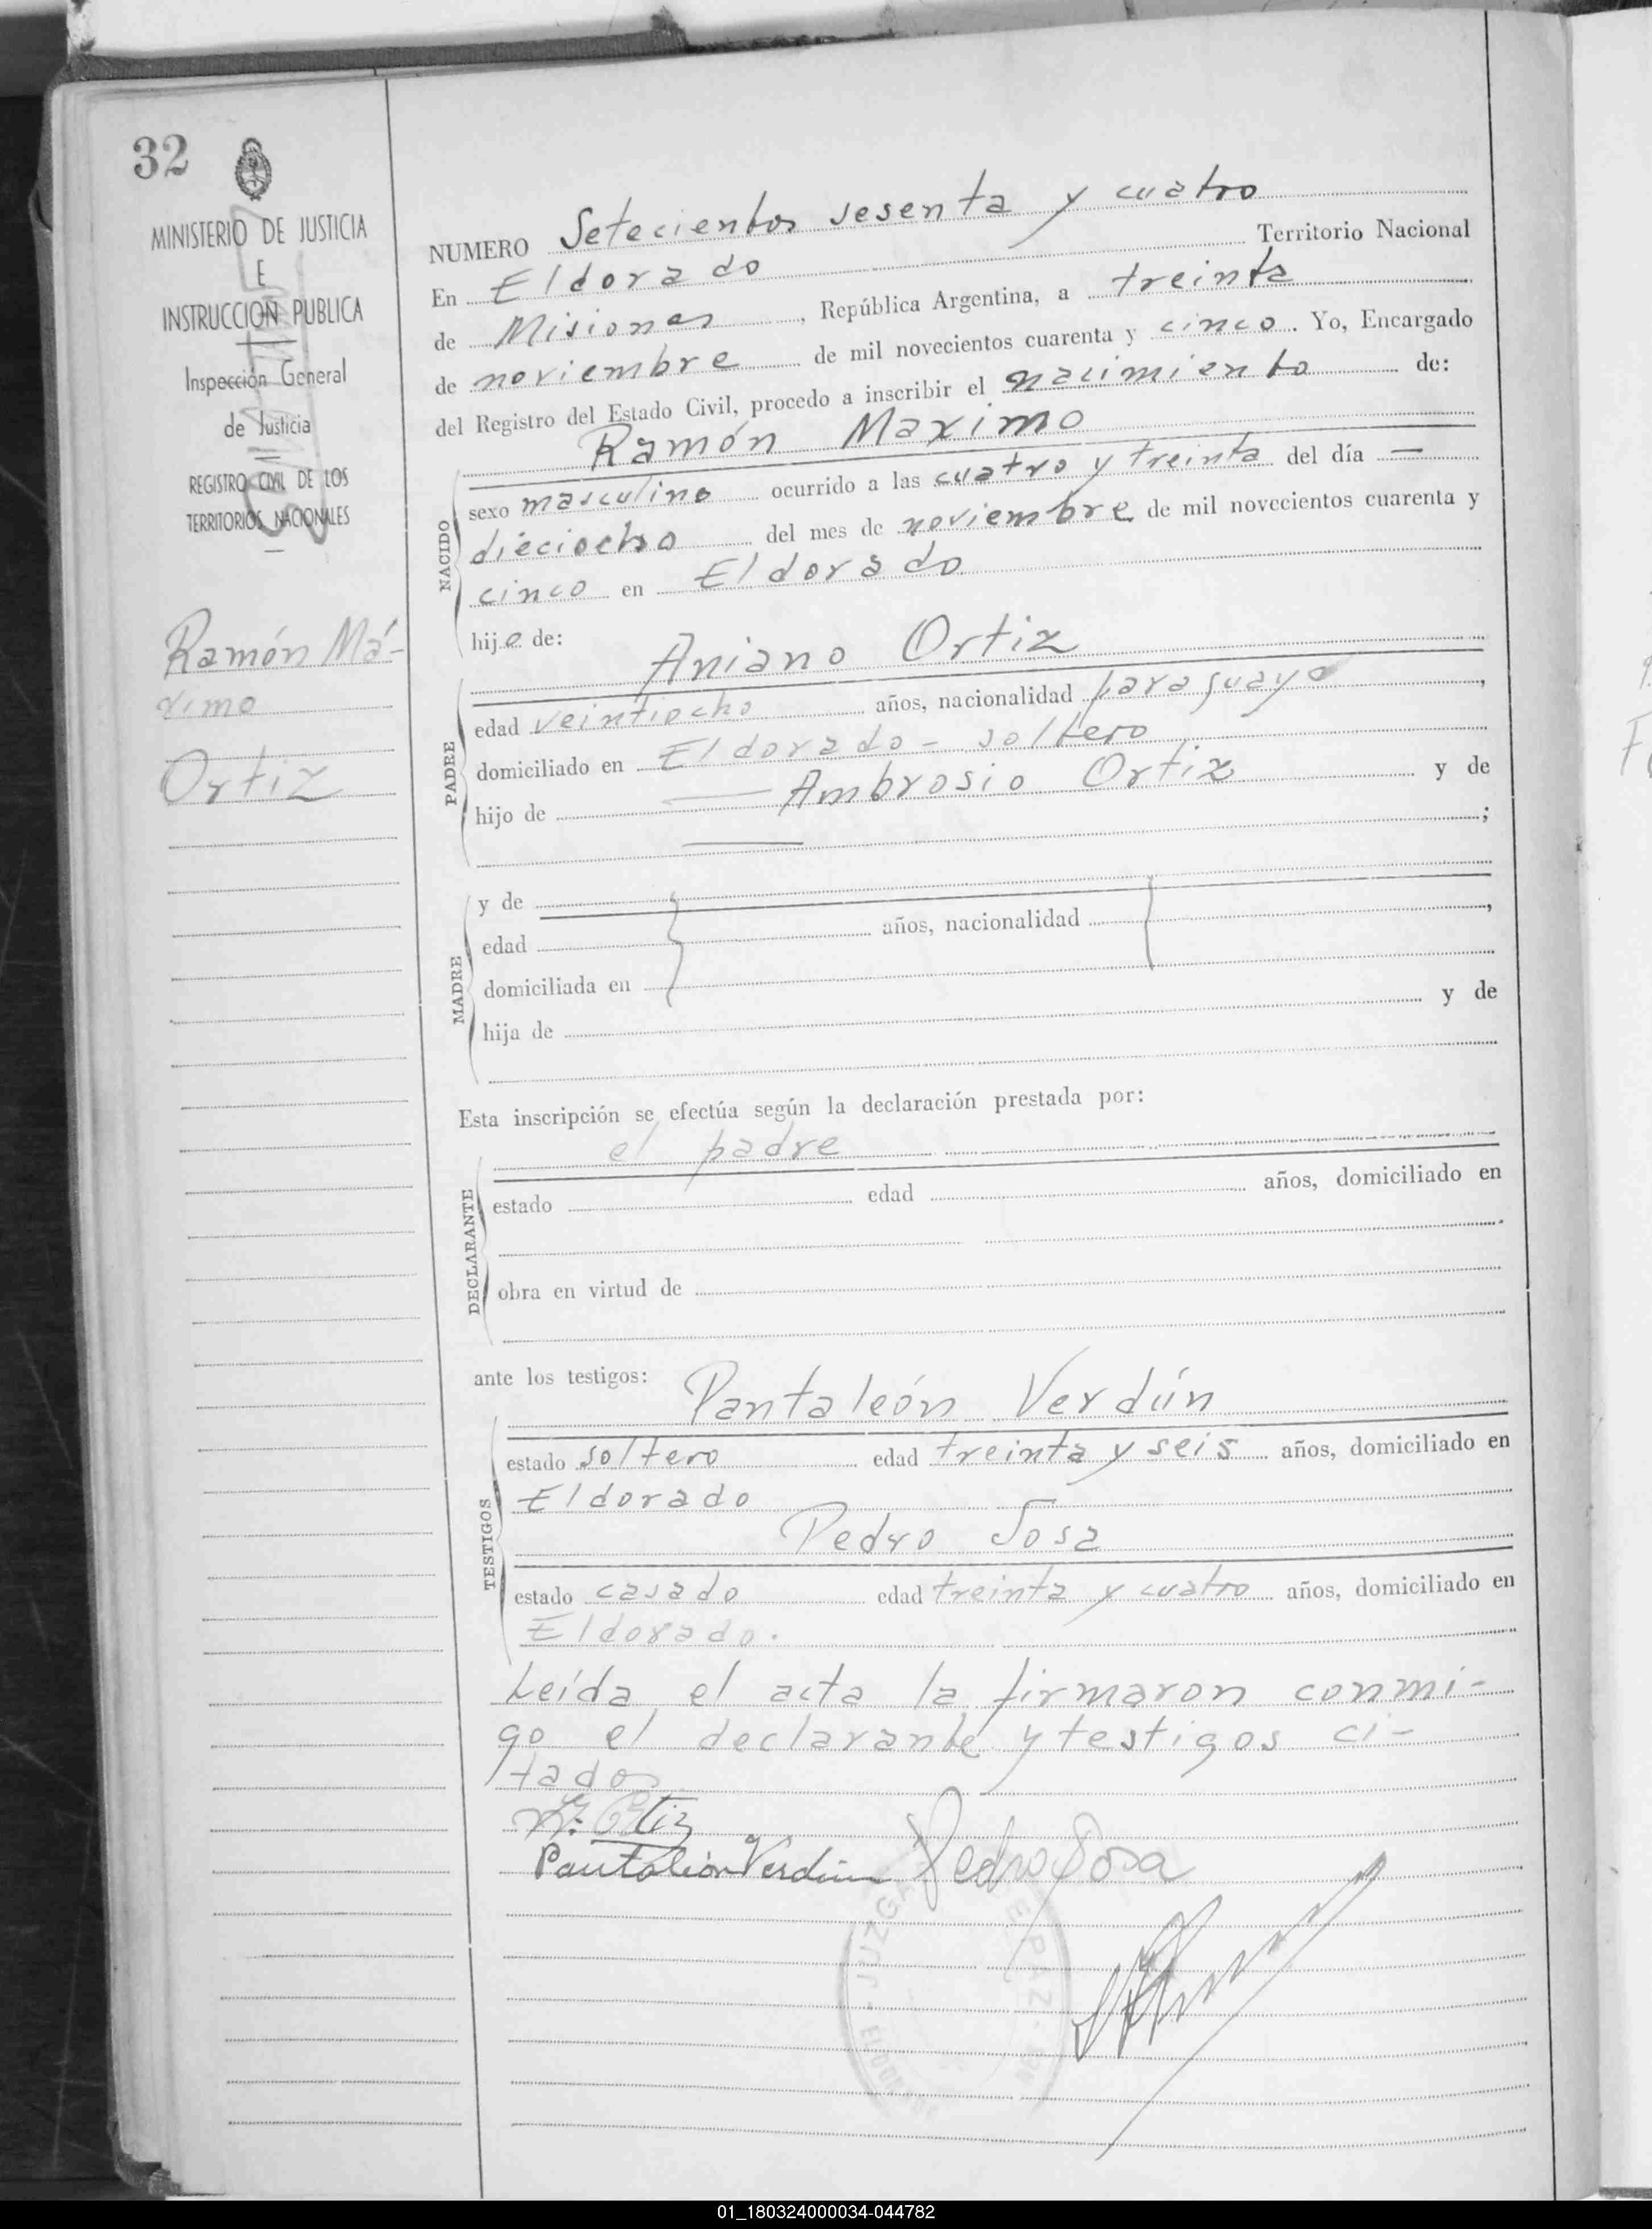 32
MINISTERIO DE JUSTICIA
E
INSTRUCCION PUBLICA
Inspección General
de Justicia
REGISTRO CIVIL DE LOS
TERRITORIOS NACIONALES
Ramón Má-
ximo
Ortiz
NUMERO Setecientos sesenta y cuatro
En Eldorado Territorio Nacional
de Misiones, República Argentina, a treinta
de noviembre de mil novecientos cuarenta y cinco. Yo, Encargado
del Registro del Estado Civil, procedo a inscribir el nacimiento de:
Ramón Maximo
NACIDO
sexo masculino ocurrido a las cuatro y treinta del día —
dieciocho del mes de noviembre de mil novecientos cuarenta y
cinco en Eldorado
hijo de:
Aniano Ortiz
PADRE
edad veintiocho años, nacionalidad paraguayo,
domiciliado en Eldorado - soltero
hijo de — Ambrosio Ortiz y de
— ;
MADRE
y de
edad años, nacionalidad ,
domiciliada en
hija de y de
Esta inscripción se efectúa según la declaración prestada por:
el padre
DECLARANTE
estado edad años, domiciliado en
obra en virtud de
ante los testigos:
Pantaleón Verdún
TESTIGOS
estado soltero edad treinta y seis años, domiciliado en
Eldorado
Pedro Sosa
estado casado edad treinta y cuatro años, domiciliado en
Eldorado.
Leída el acta la firmaron conmi-
go el declarante y testigos ci-
tados
A. Ortiz
Pantaleón Verdún Pedro Sosa
01_180324000034-044782